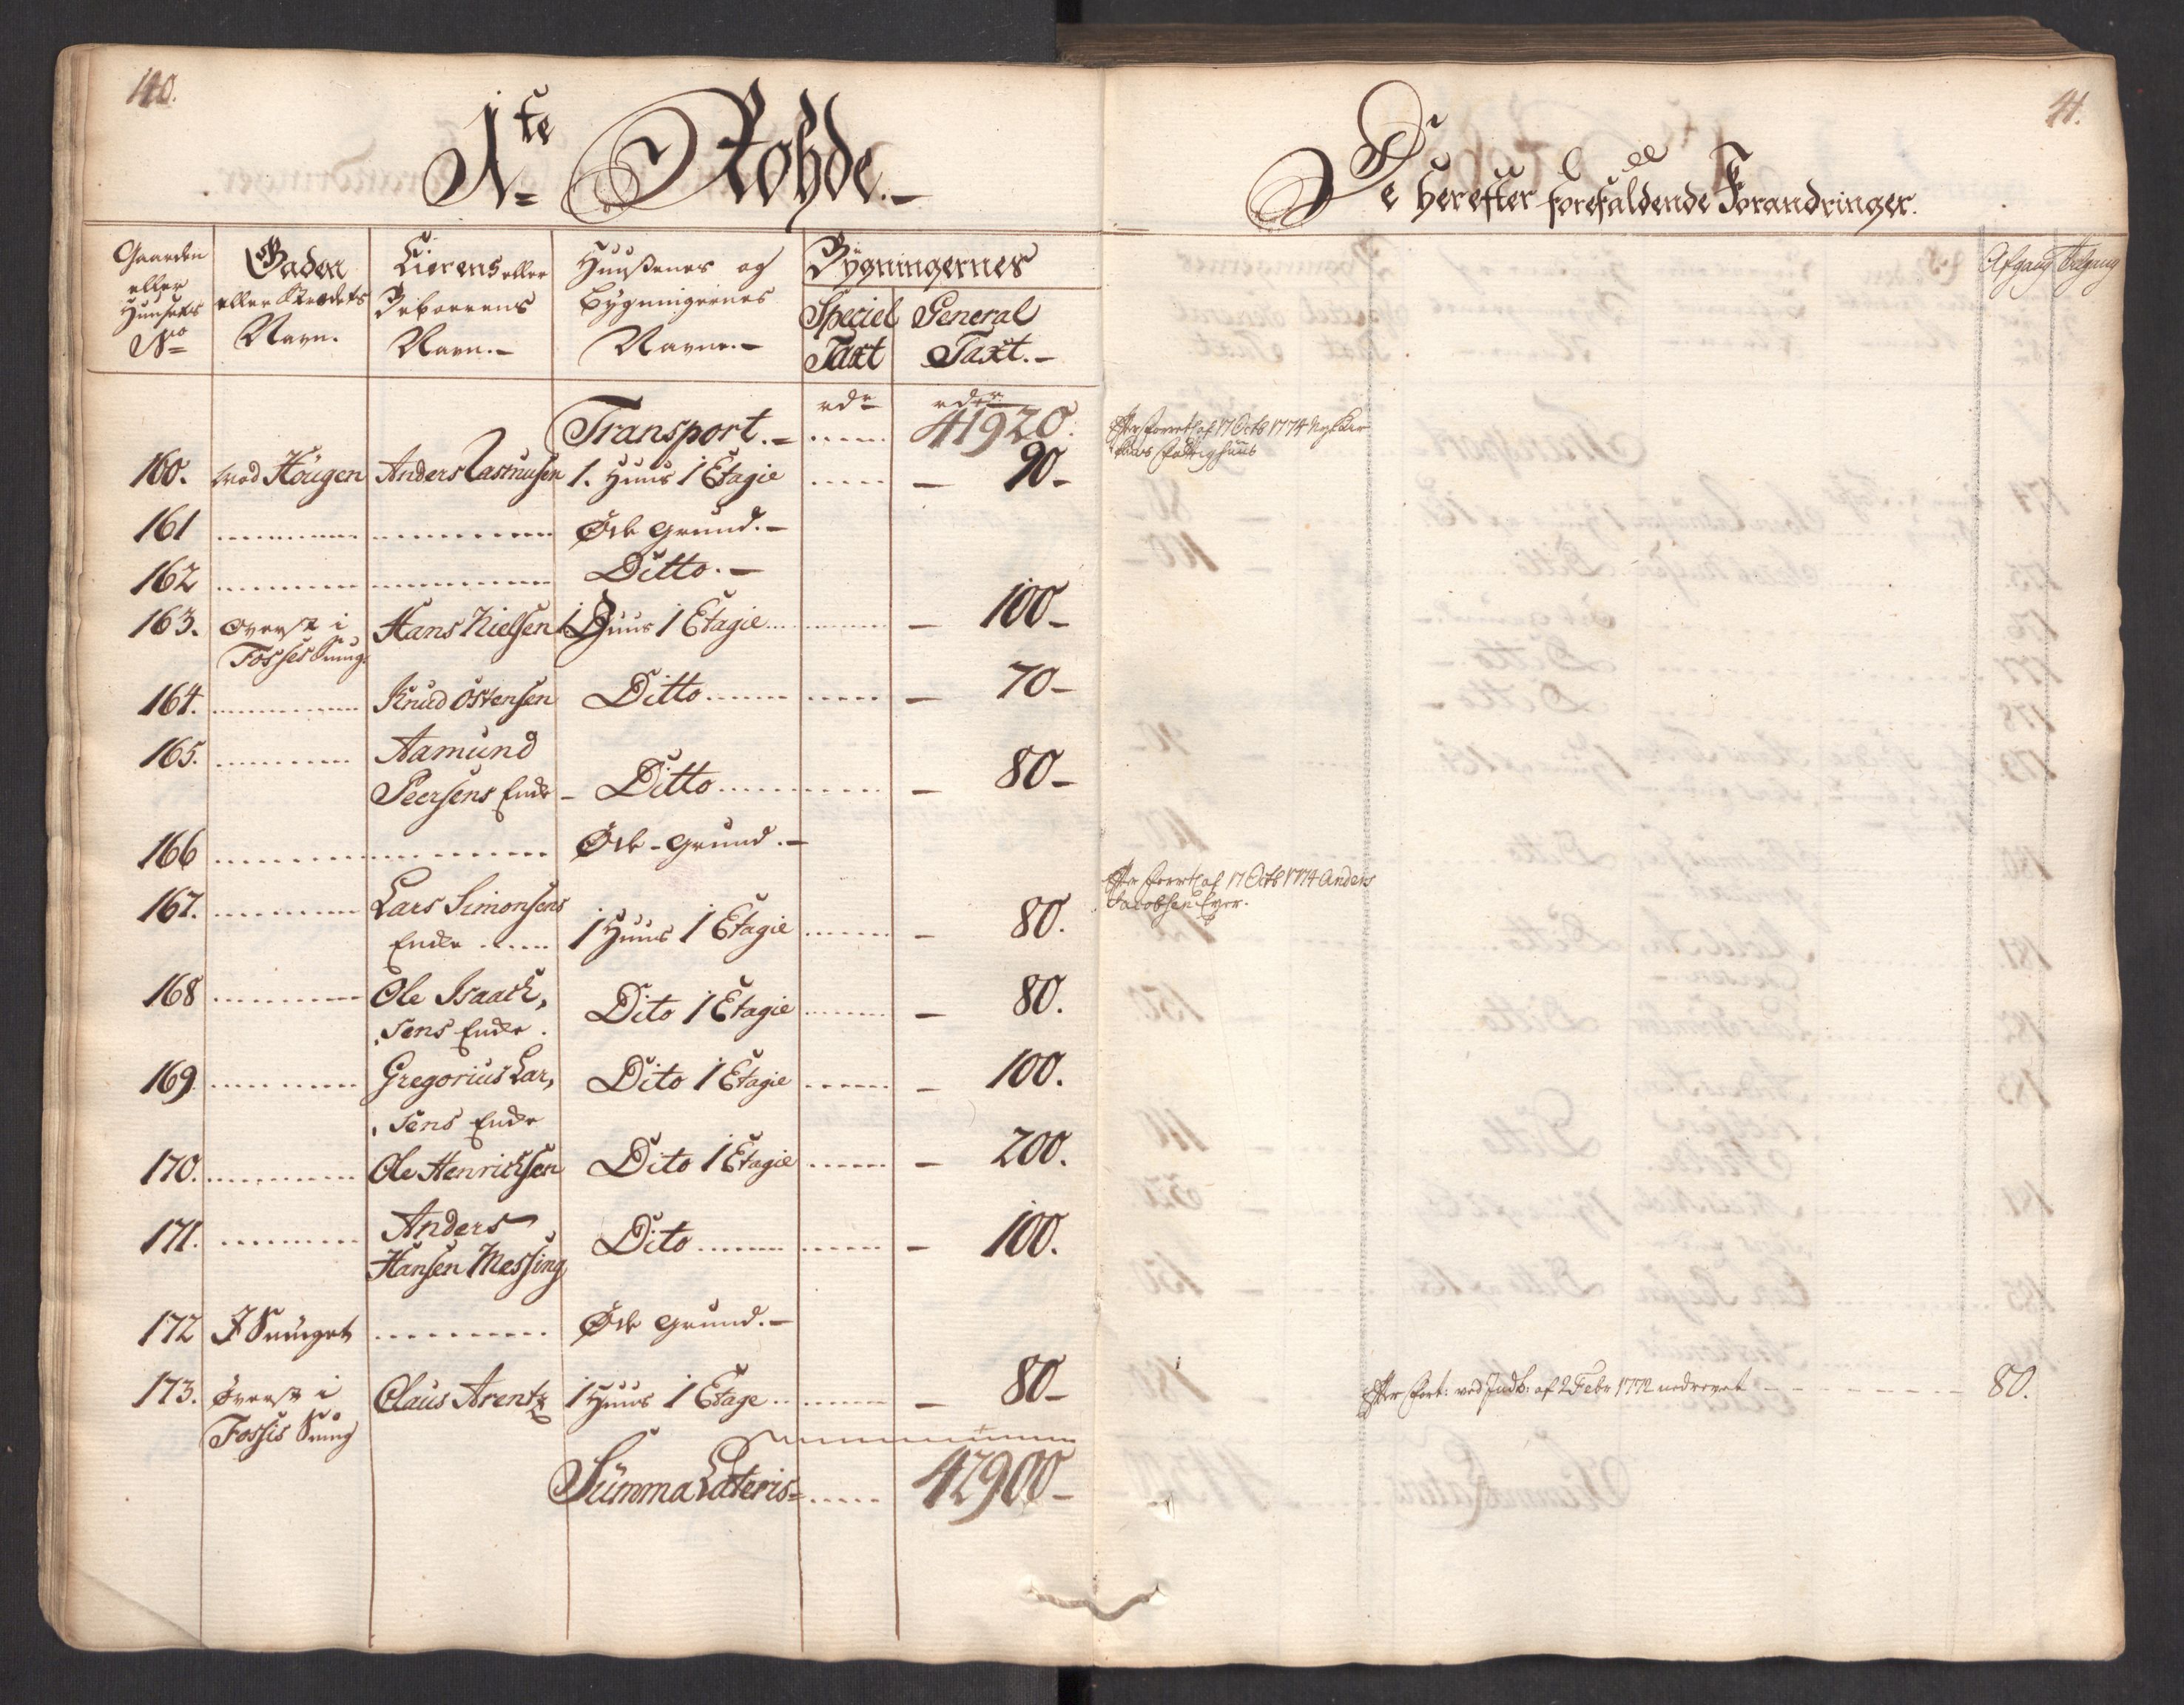 40.
1te Rohde.
Gaarden eller Huusets No
Gaden eller Strædets Navn.
Eierens eller Beboerens Navn.
Huusenes og Bygningernes Navne.
Bygningernes
Speciel Taxt
General Taxt.
rdr rdr
Transport. 41920.
160. ved Hougen Anders Rasmusen 1. Huus 1 Etagie 90
161 Øde Grund.
162 Ditto.
163. Øverst i Hans Nielsen 1 Huus 1 Etagie 100
Fosses Smug.
164. Knud Østensen Ditto 70
165. Aamund
Peersens Enke Ditto 80
166 Øde Grund.
167. Lars Simonsens
Enke 1 Huus 1 Etagie 80.
168 Ole Isaach,
sens Enke. Dito 1 Etagie 80.
169 Gregorius Lar,
sens Enke Dito 1 Etagie 100.
170. Ole Henrichsen Dito 1 Etagie 200.
171. Anders
Hansen Messing Dito 100.
172 I Smuget Øde Grund.
173. Øverst i Claus Arentz 1 Huus 1 Etage 80
Fossis Smug
Summa Lateris 42900
41.
De herefter forefaldende Forandringer.
Afgang Tilgang
Efter Forretn af 17 Octb 1774
Huus
Efter Forretn af 17 Octb 1774 Anders
Jacobsen Eyer.
Efter Fort: ved Indb: af 2 Febr 1772 nedrevet 80.